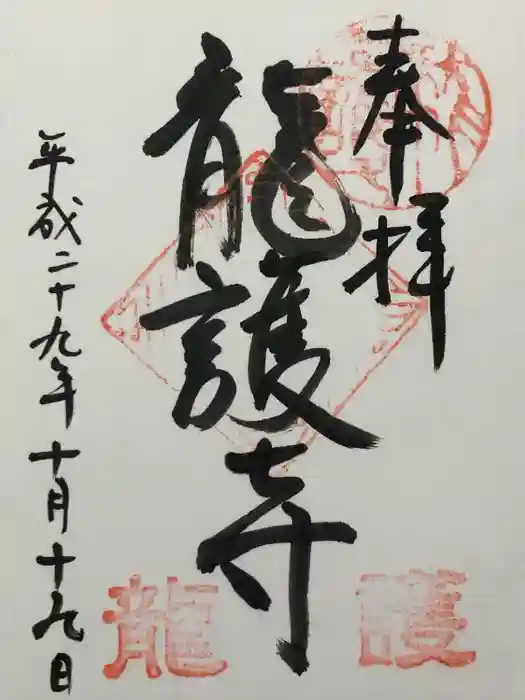 奉拝
龍護寺
平成二十九年十月十九日
龍
護